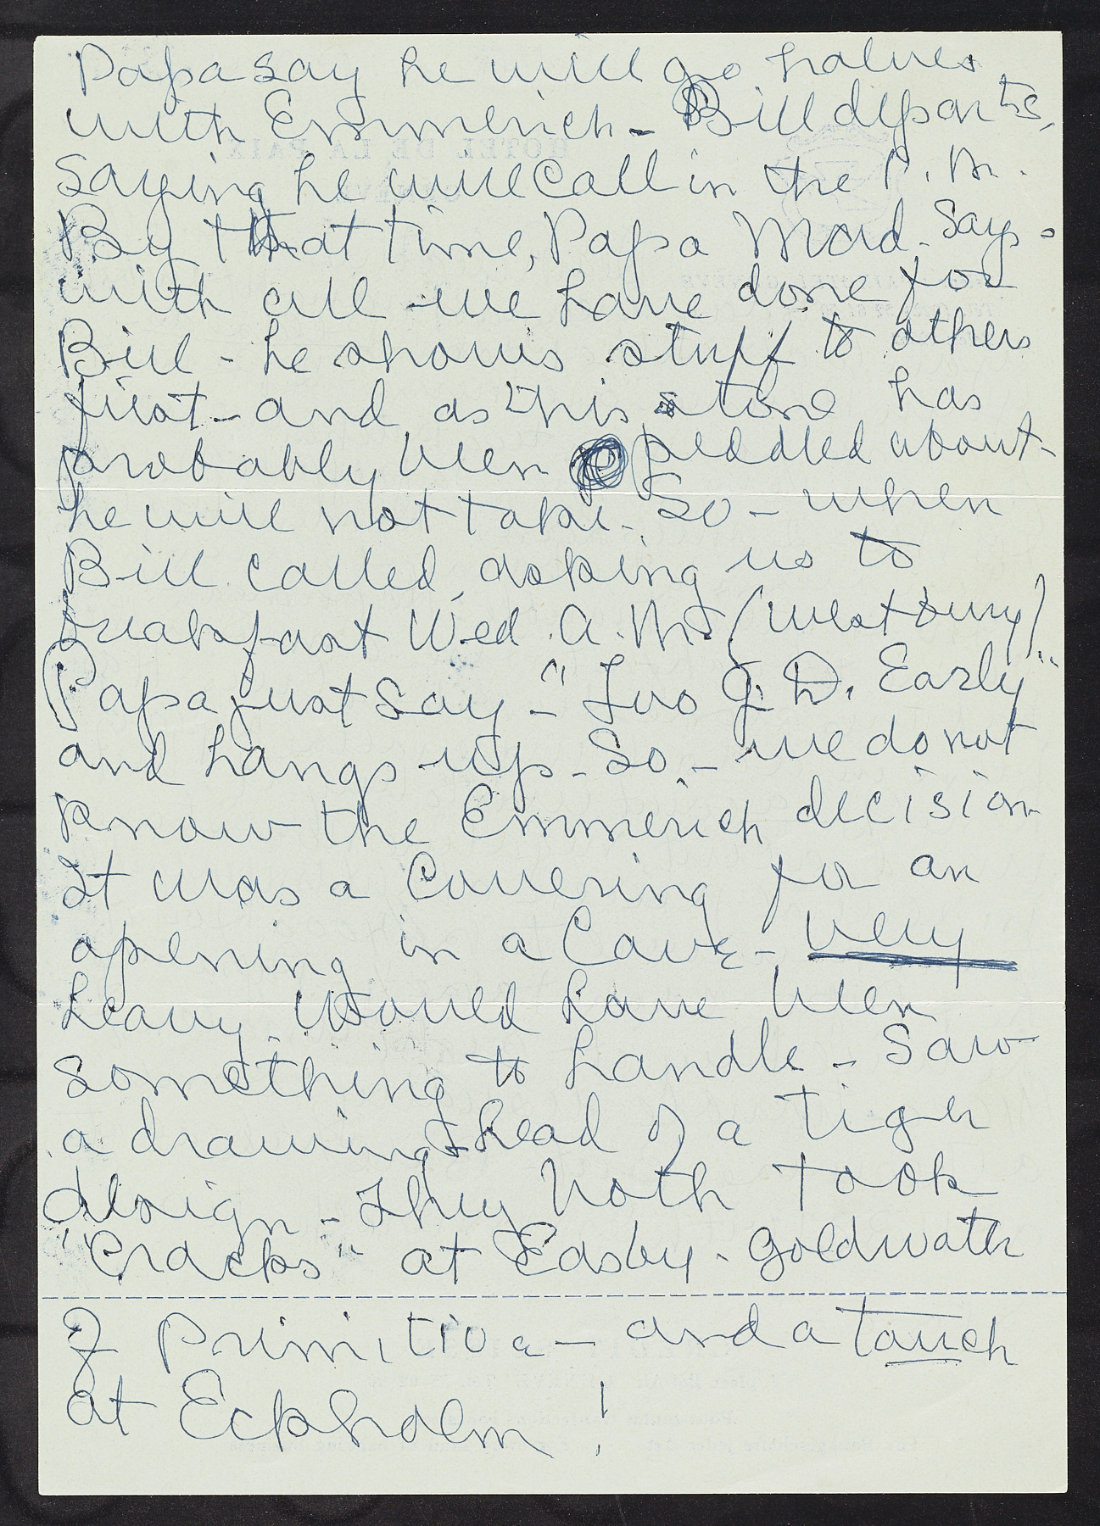 Papa say he will go halves
with Emmerich - Bill departs,
saying he will call in the P.M.
By that time, Papa Mad - says -
with all we have done for
Bill - he shows stuff to others
first - and as this stone has
probably been peddled about -
he will not take. So - when
Bill called, asking us to
breakfast Wed. A.M. (Westbury)
Papa just say - "Too G. D. Early"
and hangs up - So - we do not
know the Emmerich decision
It was a Covering for an
opening in a Cave - very
heavy. Would have been
something to handle - Saw
a drawing - head of a tiger
design - They both took
"cracks" at Easby - Goldwater
of Primitive - and a touch
at Eckholm!
HOTEL DE LA PAIX